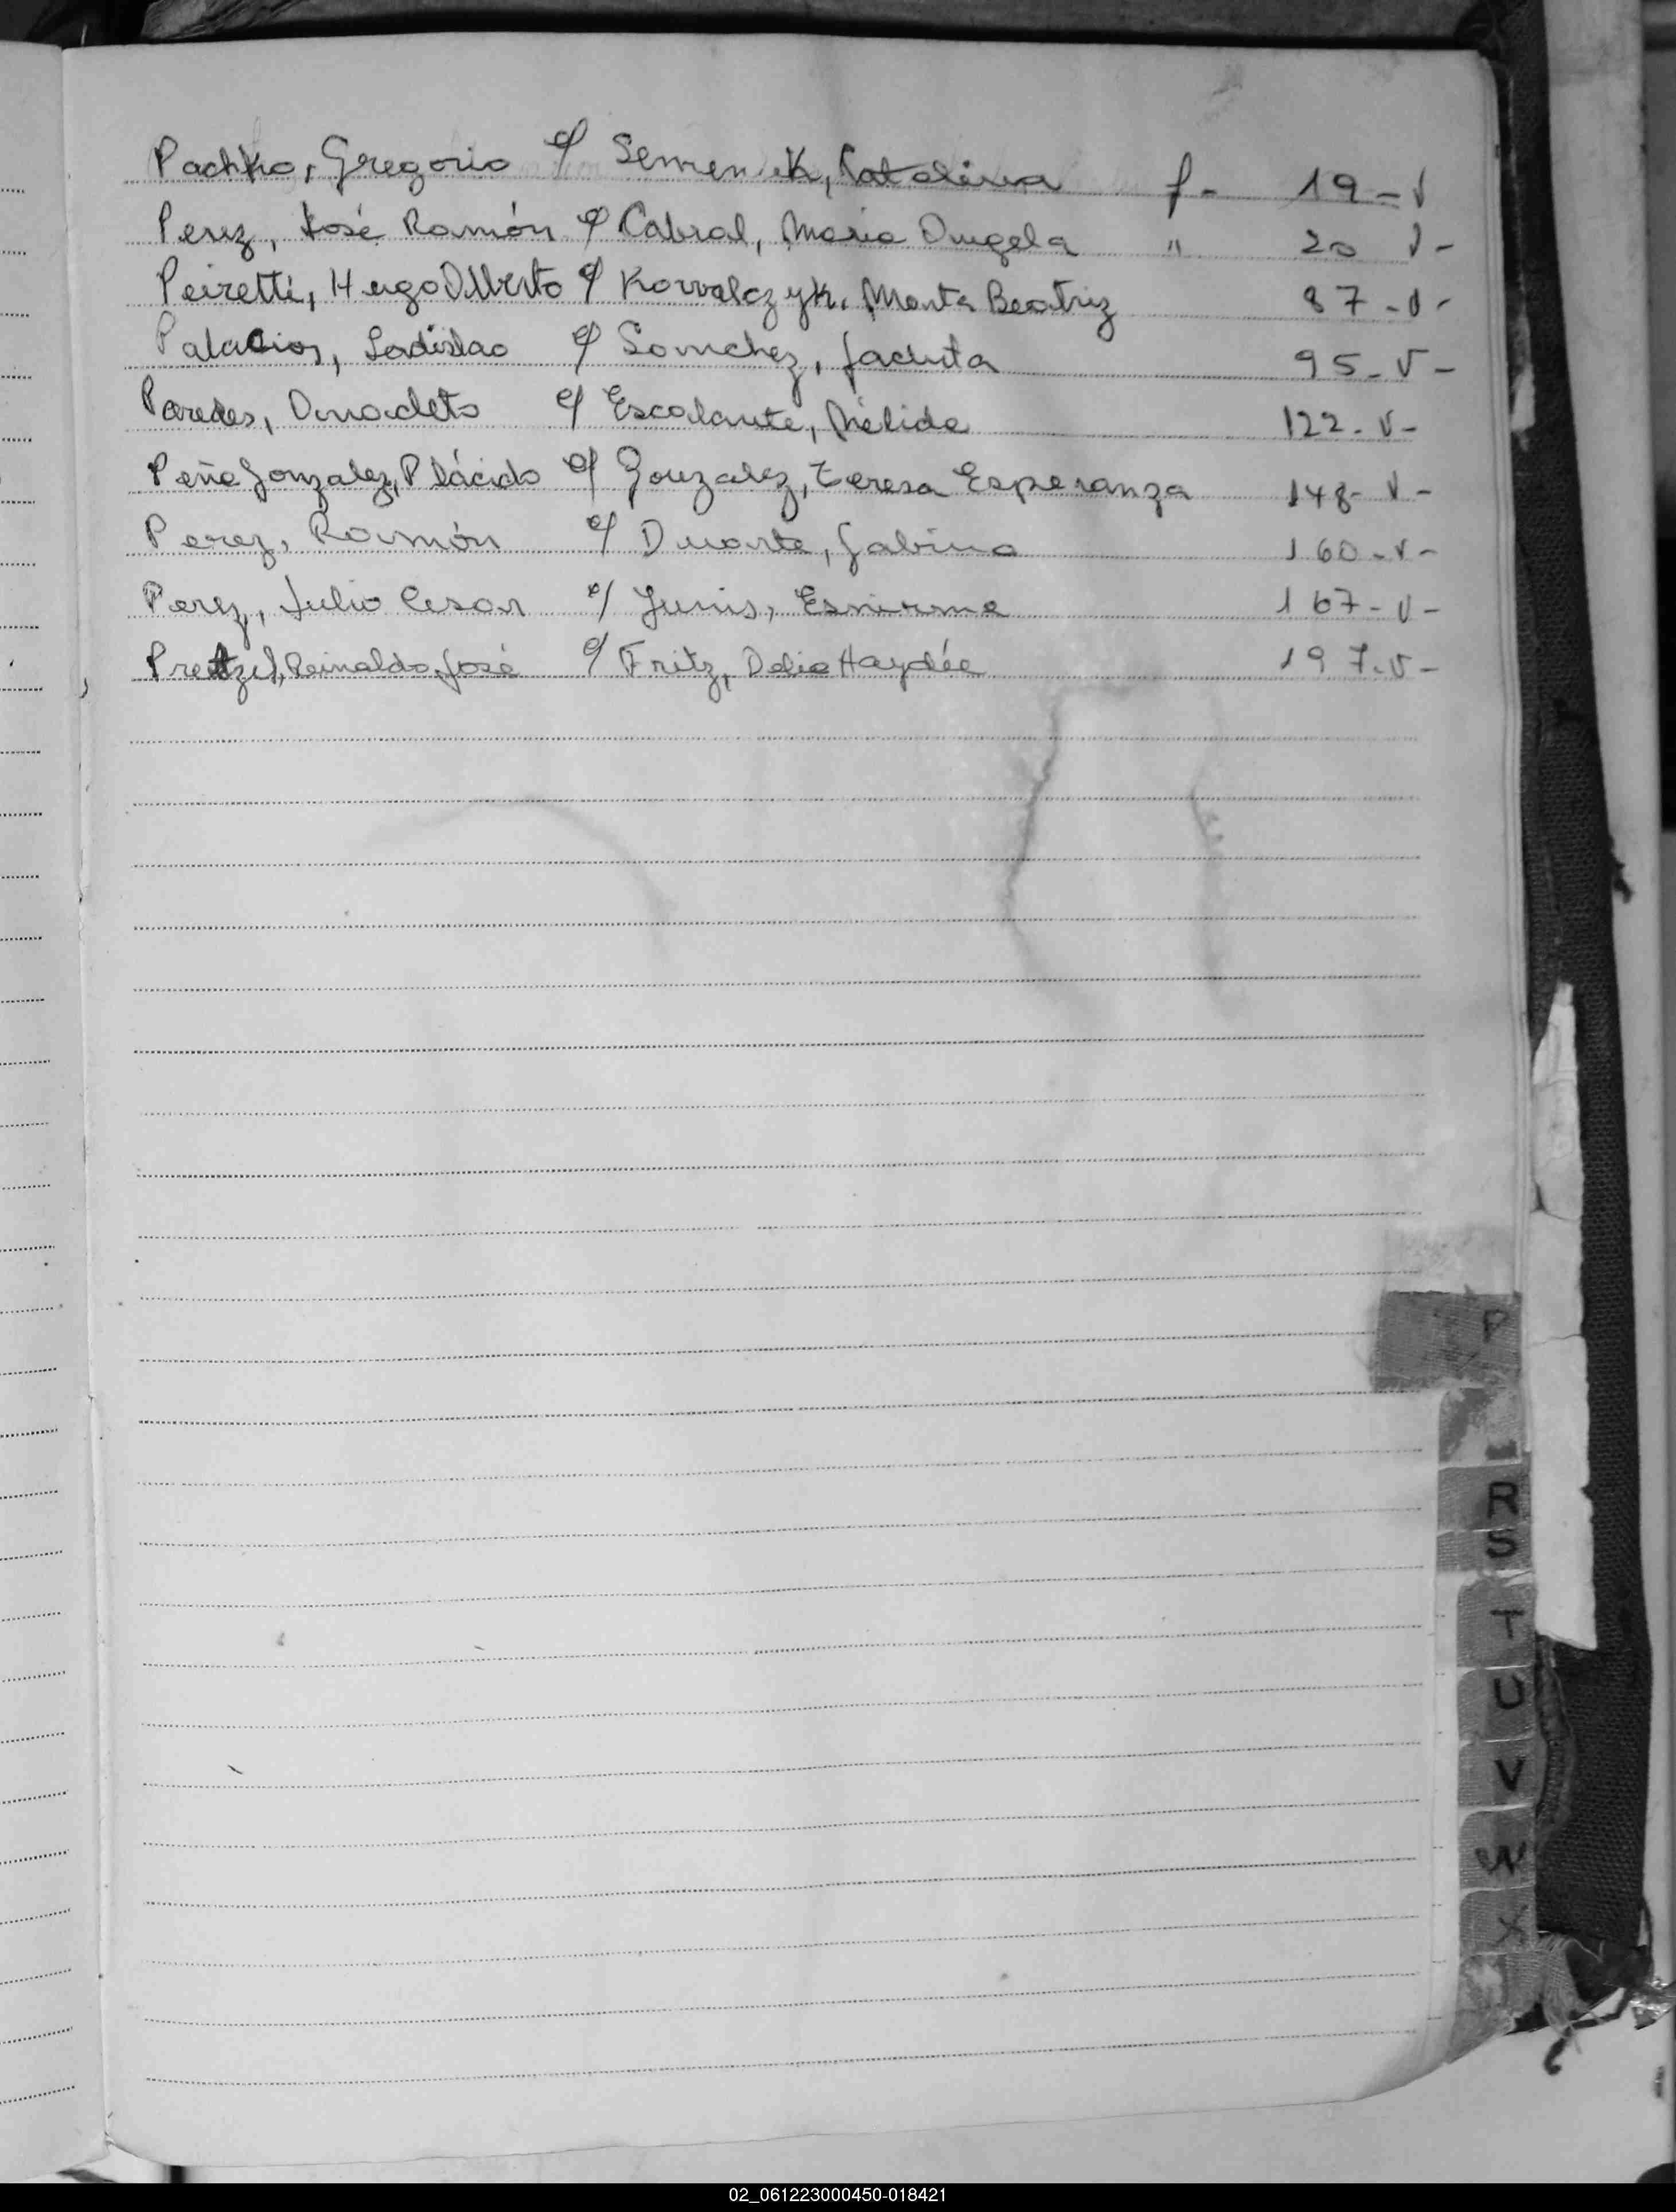 Pachko, Gregorio c/ Semeniuk, Catalina f- 19-v
Perez, José Ramón c/ Cabral, María Angela " 20 v-
Peiretti, Hugo Alberto c/ Kowalczyk, Marta Beatriz 87-v-
Palacios, Ladislao c/ Sanchez, Jacinta 95-v-
Paredes, Anacleto c/ Escalante, Nélida 122-v-
Peña Gonzalez, Plácido c/ Gonzalez, Teresa Esperanza 148-v-
Perez, Ramón c/ Duarte, Sabina 160-v-
Perez, Julio Cesar c/ 167-v-
Pretzel, Reinaldo José c/ Fritz, Delia Haydée 197-v-
P
R
S
T
U
V
W
X
02_061223000450-018421